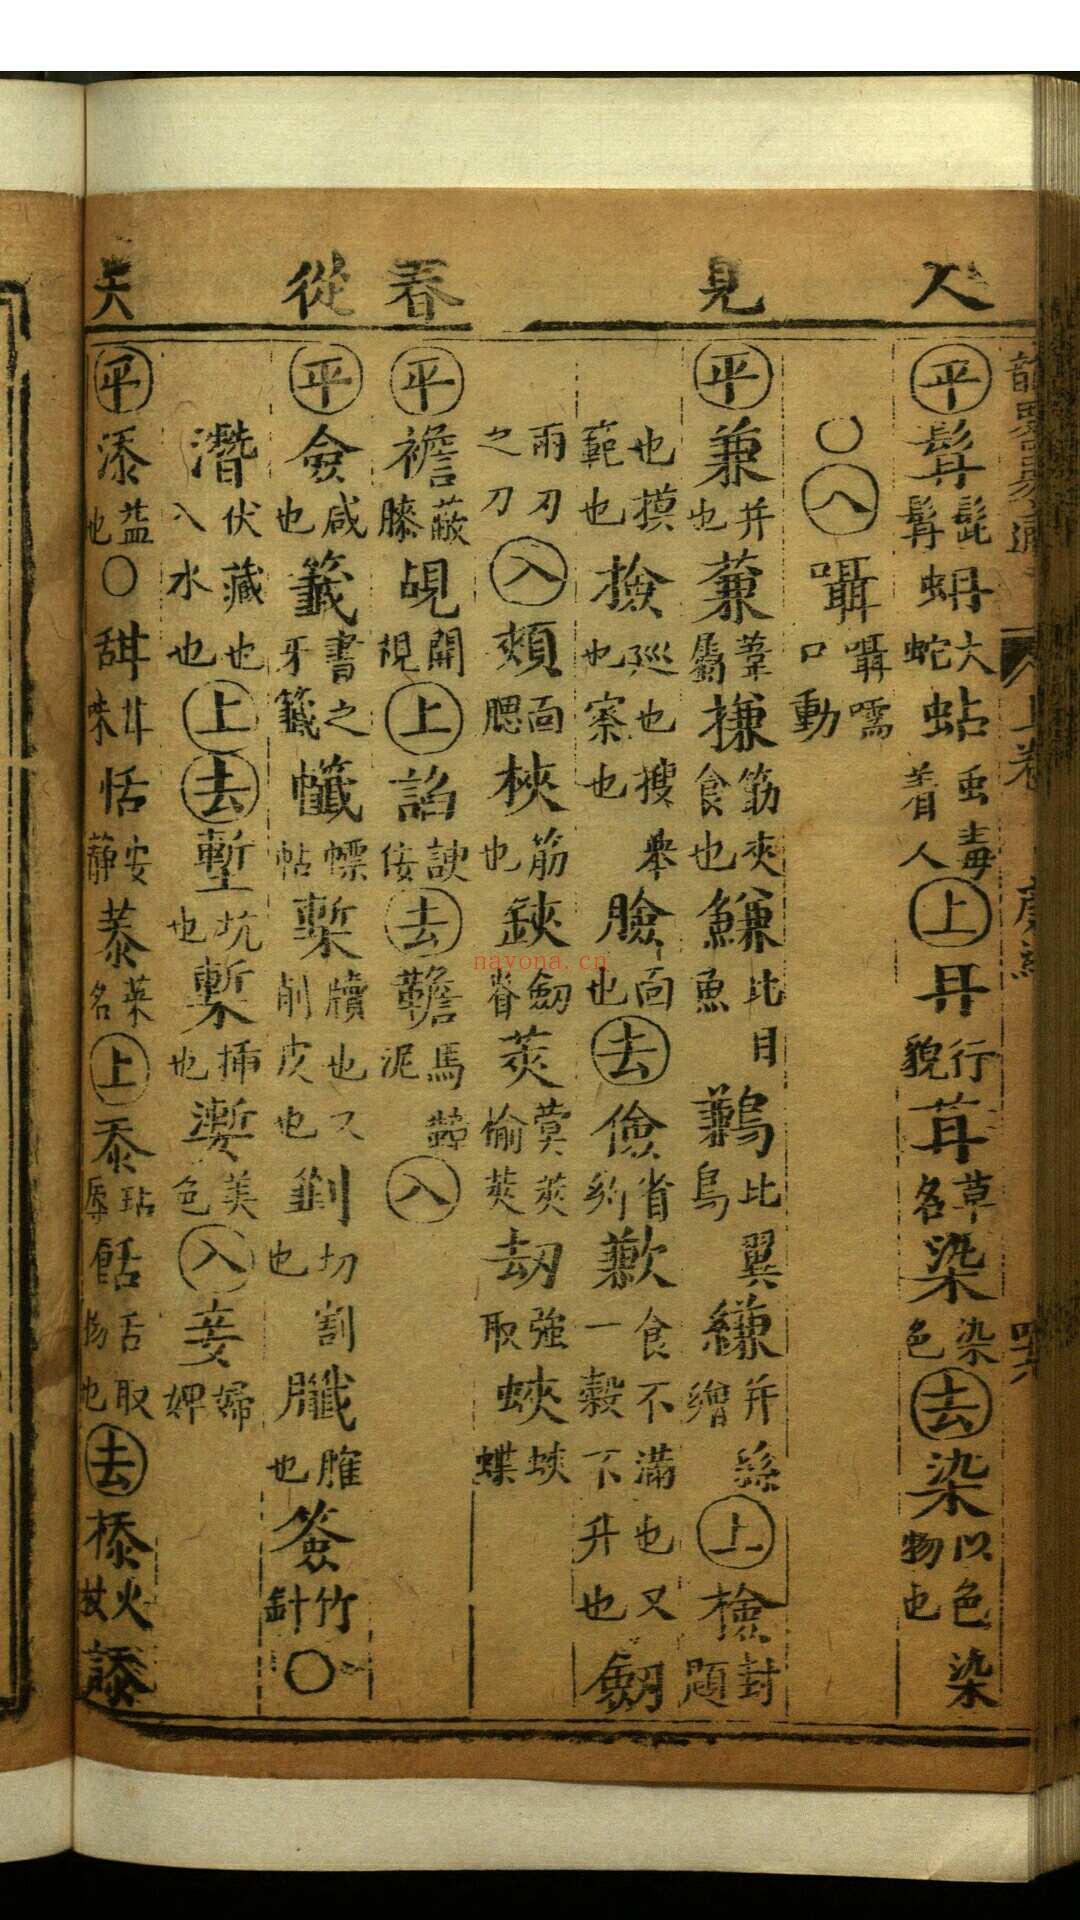 人 見 春 從 天
㊤卷
平 髯 髭髯 蚦 大蛇 蛅 虫毒着人 上 冉 行貌 苒 草名 染 染色 去 染 以色染物也
〇 入 囁 囁嚅口動
平 兼 并也 蒹 葦屬 搛 筯夾食也 鰜 比目魚 鶼 比翼鳥 縑 并絲繒 上 檢 封題
也摸範也 撿 巡也搜舉也察也 臉 面也 去 儉 省約 歉 食不滿也又一穀不升也 劒
兩刃之刀 入 頰 面腮 梜 筯也 鋏 劒脊 莢 蓂莢榆莢 劫 強取 蛺 蛺蝶
平 襜 蔽膝 覘 開視 上 諂 諛佞 去 韂 馬韂泥 入
平 僉 咸也 籤 書之牙籤 幟 幖帖 槧 牘也又削皮也 劗 切割也 臘 脽也 簽 竹針 〇
潛 伏藏也入水也 上 去 塹 坑也 槧 插也 漸 美色 入 妾 婦婢
平 添 益也 〇 甜 甘味 恬 安靜 菾 菜名 上 忝 玷辱 餂 舌取物也 去 㮇 火杖 䛼
nayona.cn